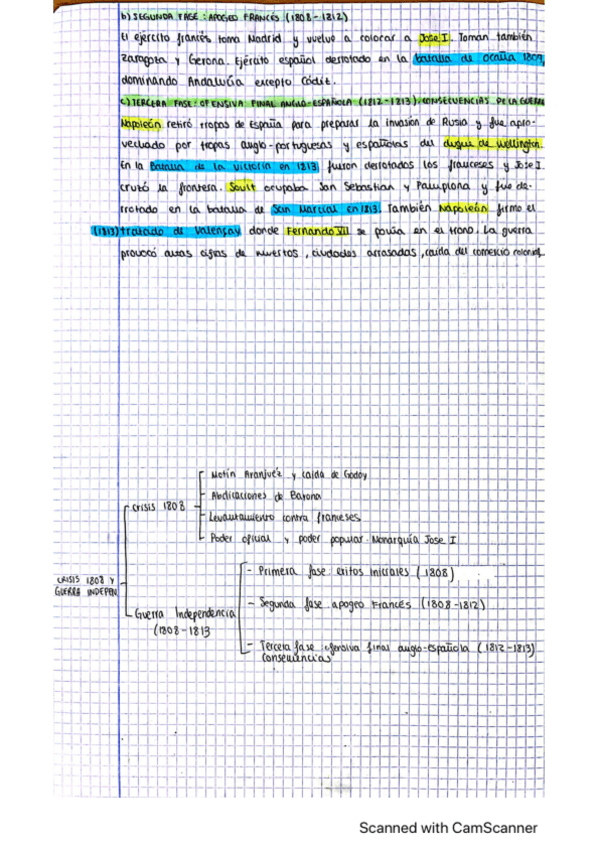 b) SEGUNDA FASE: APOGEO FRANCÉS (1808-1812)
El ejército francés toma Madrid y vuelve a colocar a Jose I. Toman también
Zaragoza y Gerona. Ejército español derrotado en la batalla de Ocaña 1809,
dominando Andalucía excepto Cádiz.
c) TERCERA FASE: OFENSIVA FINAL ANGLO-ESPAÑOLA (1812-1813). CONSECUENCIAS DE LA GUERRA
Napoleón retiró tropas de España para preparar la invasión de Rusia y fue apro-
vechado por tropas anglo-portuguesas y españolas del duque de Wellington.
En la Batalla de la Victoria en 1813 fueron derrotados los franceses y Jose I
cruzó la frontera. Soult ocupaba San Sebastian y Pamplona y fue de-
rrotado en la batalla de San Marcial en 1813. También Napoleón firmo el
(1813) tratado de Valençay donde Fernando VII se ponía en el trono. La guerra
provocó altas cifras de muertos, ciudades arrasadas, caída del comercio colonial.
Motín Aranjuez y caída de Godoy
Abdicaciones de Bayona
Crisis 1808
Levantamiento contra franceses
Poder oficial y poder popular. Monarquía Jose I
CRISIS 1808 Y
GUERRA INDEPEN
Primera fase: exitos iniciales (1808)
- Segunda fase apogeo Francés (1808-1812)
Guerra Independencia
(1808-1813
- Tercera fase ofensiva final anglo-española (1812-1813)
Consecuencias
Scanned with CamScanner